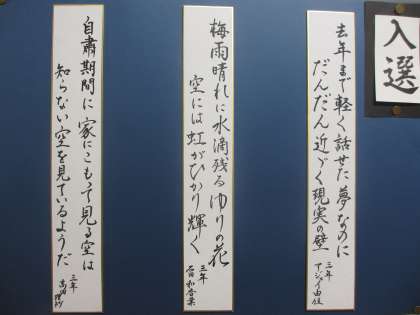 入選
去年まで軽く話せた夢なのに
だんだん近づく現実の壁
三年
アジェイ由依
梅雨晴れに水滴残るゆりの花
空には虹がひかり輝く
三年
和香菜
自粛期間に家にこもって見る空は
知らない空を見ているようだ
三年